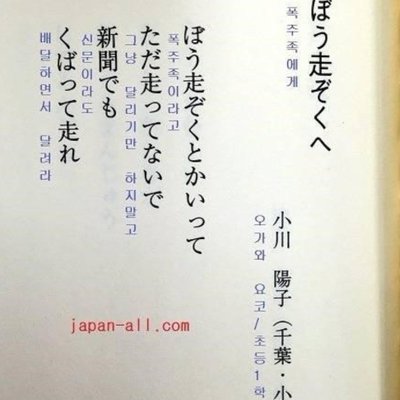 ぼう走ぞくへ
폭주족에게
小川 陽子（千葉・小
오가와 요코/초등1학
ぼう走ぞくとかいって
폭주족이라고
ただ走ってないで
그냥 달리기만 하지말고
新聞でも
신문이라도
くばって走れ
배달하면서 달려라
japan-all.com